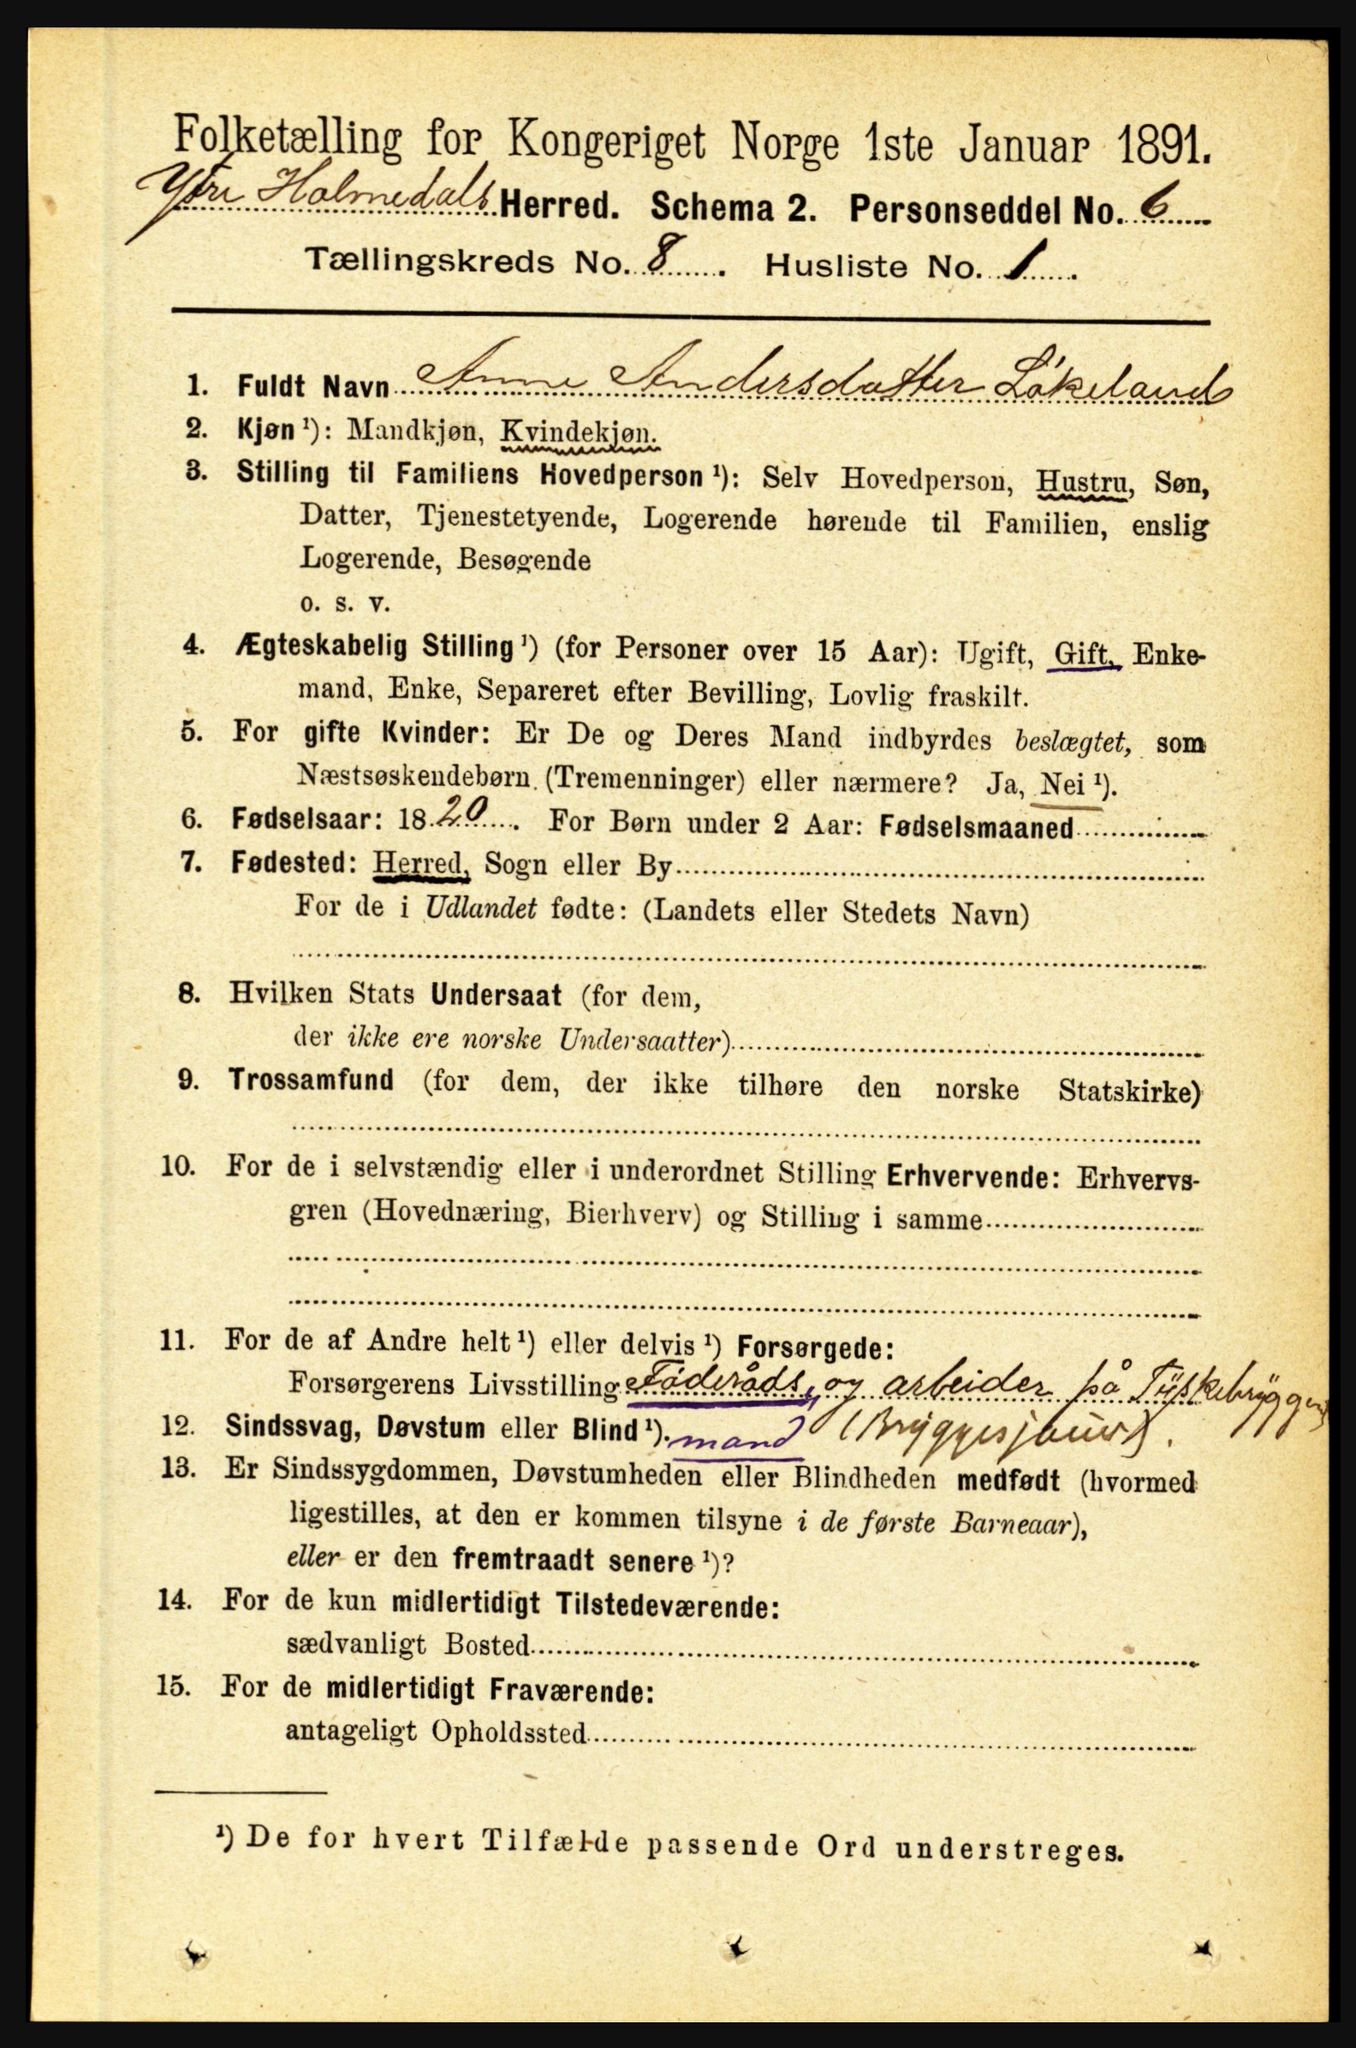 Folketælling for Kongeriget Norge 1ste Januar 1891.
Ytre Holmedals Herred. Schema 2. Personseddel No. 6
Tællingskreds No. 8. Husliste No. 1.
1. Fuldt Navn Anne Andersdatter Løkeland
2. Kjøn ¹): Mandkjøn, Kvindekjøn.
3. Stilling til Familiens Hovedperson ¹): Selv Hovedperson, Hustru, Søn,
Datter, Tjenestetyende, Logerende hørende til Familien, enslig
Logerende, Besøgende
o. s. v.
4. Ægteskabelig Stilling ¹) (for Personer over 15 Aar): Ugift, Gift, Enke-
mand, Enke, Separeret efter Bevilling, Lovlig fraskilt.
5. For gifte Kvinder: Er De og Deres Mand indbyrdes beslægtet, som
Næstsøskendebørn (Tremenninger) eller nærmere? Ja, Nei ¹).
6. Fødselsaar: 1820. For Børn under 2 Aar: Fødselsmaaned
7. Fødested: Herred, Sogn eller By
For de i Udlandet fødte: (Landets eller Stedets Navn)
8. Hvilken Stats Undersaat (for dem,
der ikke ere norske Undersaatter)
9. Trossamfund (for dem, der ikke tilhøre den norske Statskirke)
10. For de i selvstændig eller i underordnet Stilling Erhvervende: Erhvervs-
gren (Hovednæring, Bierhverv) og Stilling i samme
11. For de af Andre helt ¹) eller delvis ¹) Forsørgede:
Forsørgerens Livsstilling Föderåds, og arbeider på Tÿskebrÿggen
12. Sindssvag, Døvstum eller Blind ¹). mand (Brÿggesjauer).
13. Er Sindssygdommen, Døvstumheden eller Blindheden medfødt (hvormed
ligestilles, at den er kommen tilsyne i de første Barneaar),
eller er den fremtraadt senere ¹)?
14. For de kun midlertidigt Tilstedeværende:
sædvanligt Bosted
15. For de midlertidigt Fraværende:
antageligt Opholdssted
¹) De for hvert Tilfælde passende Ord understreges.